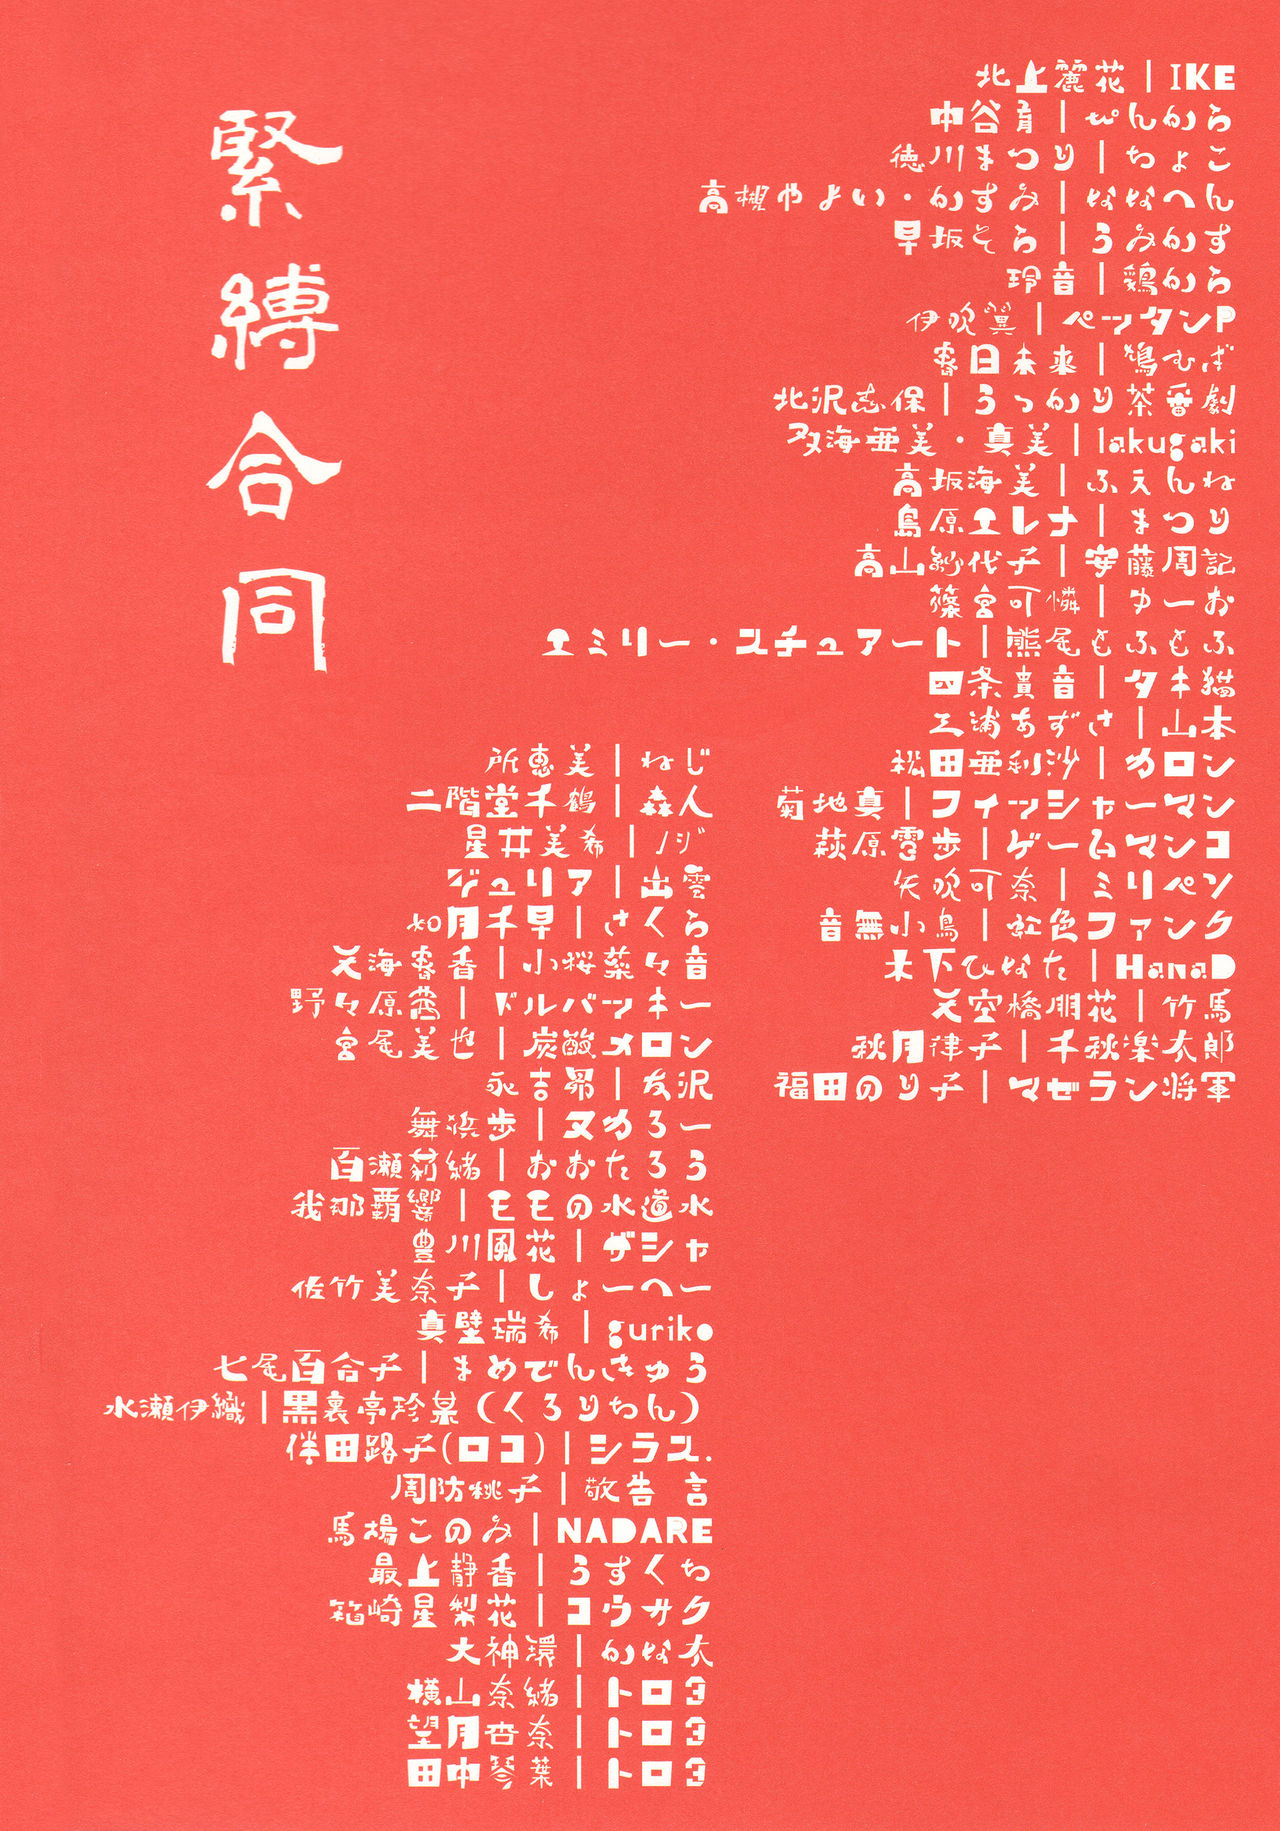 緊縛合同
北上麗花｜IKE
中谷育｜ぴんから
徳川まつり｜ちょこ
高槻やよい・かすみ｜ななへん
早坂そら｜うみかす
玲音｜鶏から
伊吹翼｜ペッタンP
春日未来｜鳩むぎ
北沢志保｜うっかり茶番劇
双海亜美・真美｜lakugaki
高坂海美｜ふえんね
島原エレナ｜まつり
高山紗代子｜安藤周記
篠宮可憐｜ゆーお
エミリー・スチュアート｜熊尾もふもふ
四条貴音｜タキ猫
三浦あずさ｜山本
松田亜利沙｜カロン
菊地真｜フィッシャーマン
萩原雪歩｜ゲームマンコ
矢吹可奈｜ミリペン
音無小鳥｜虹色ファンク
木下ひなた｜HanaD
天空橋朋花｜竹馬
秋月律子｜千秋楽太郎
福田のり子｜マゼラン将軍
所恵美｜ねじ
二階堂千鶴｜森人
星井美希｜ノジ
ジュリア｜出雲
如月千早｜さくら
天海春香｜小桜菜々音
野々原茜｜ドルバッキー
宮尾美也｜炭酸メロン
永吉昴｜友沢
舞浜歩｜ヌカろー
百瀬莉緒｜おおたろう
我那覇響｜モモの水道水
豊川風花｜ザシャ
佐竹美奈子｜しょーへー
真壁瑞希｜guriko
七尾百合子｜まめでんきゅう
水瀬伊織｜黒裏亭珍某(くろりちん)
伴田路子(ロコ)｜シラス.
周防桃子｜敬告言
馬場このみ｜NADARE
最上静香｜うすくち
箱崎星梨花｜コウサク
大神環｜かな太
横山奈緒｜トロ3
望月杏奈｜トロ3
田中琴葉｜トロ3